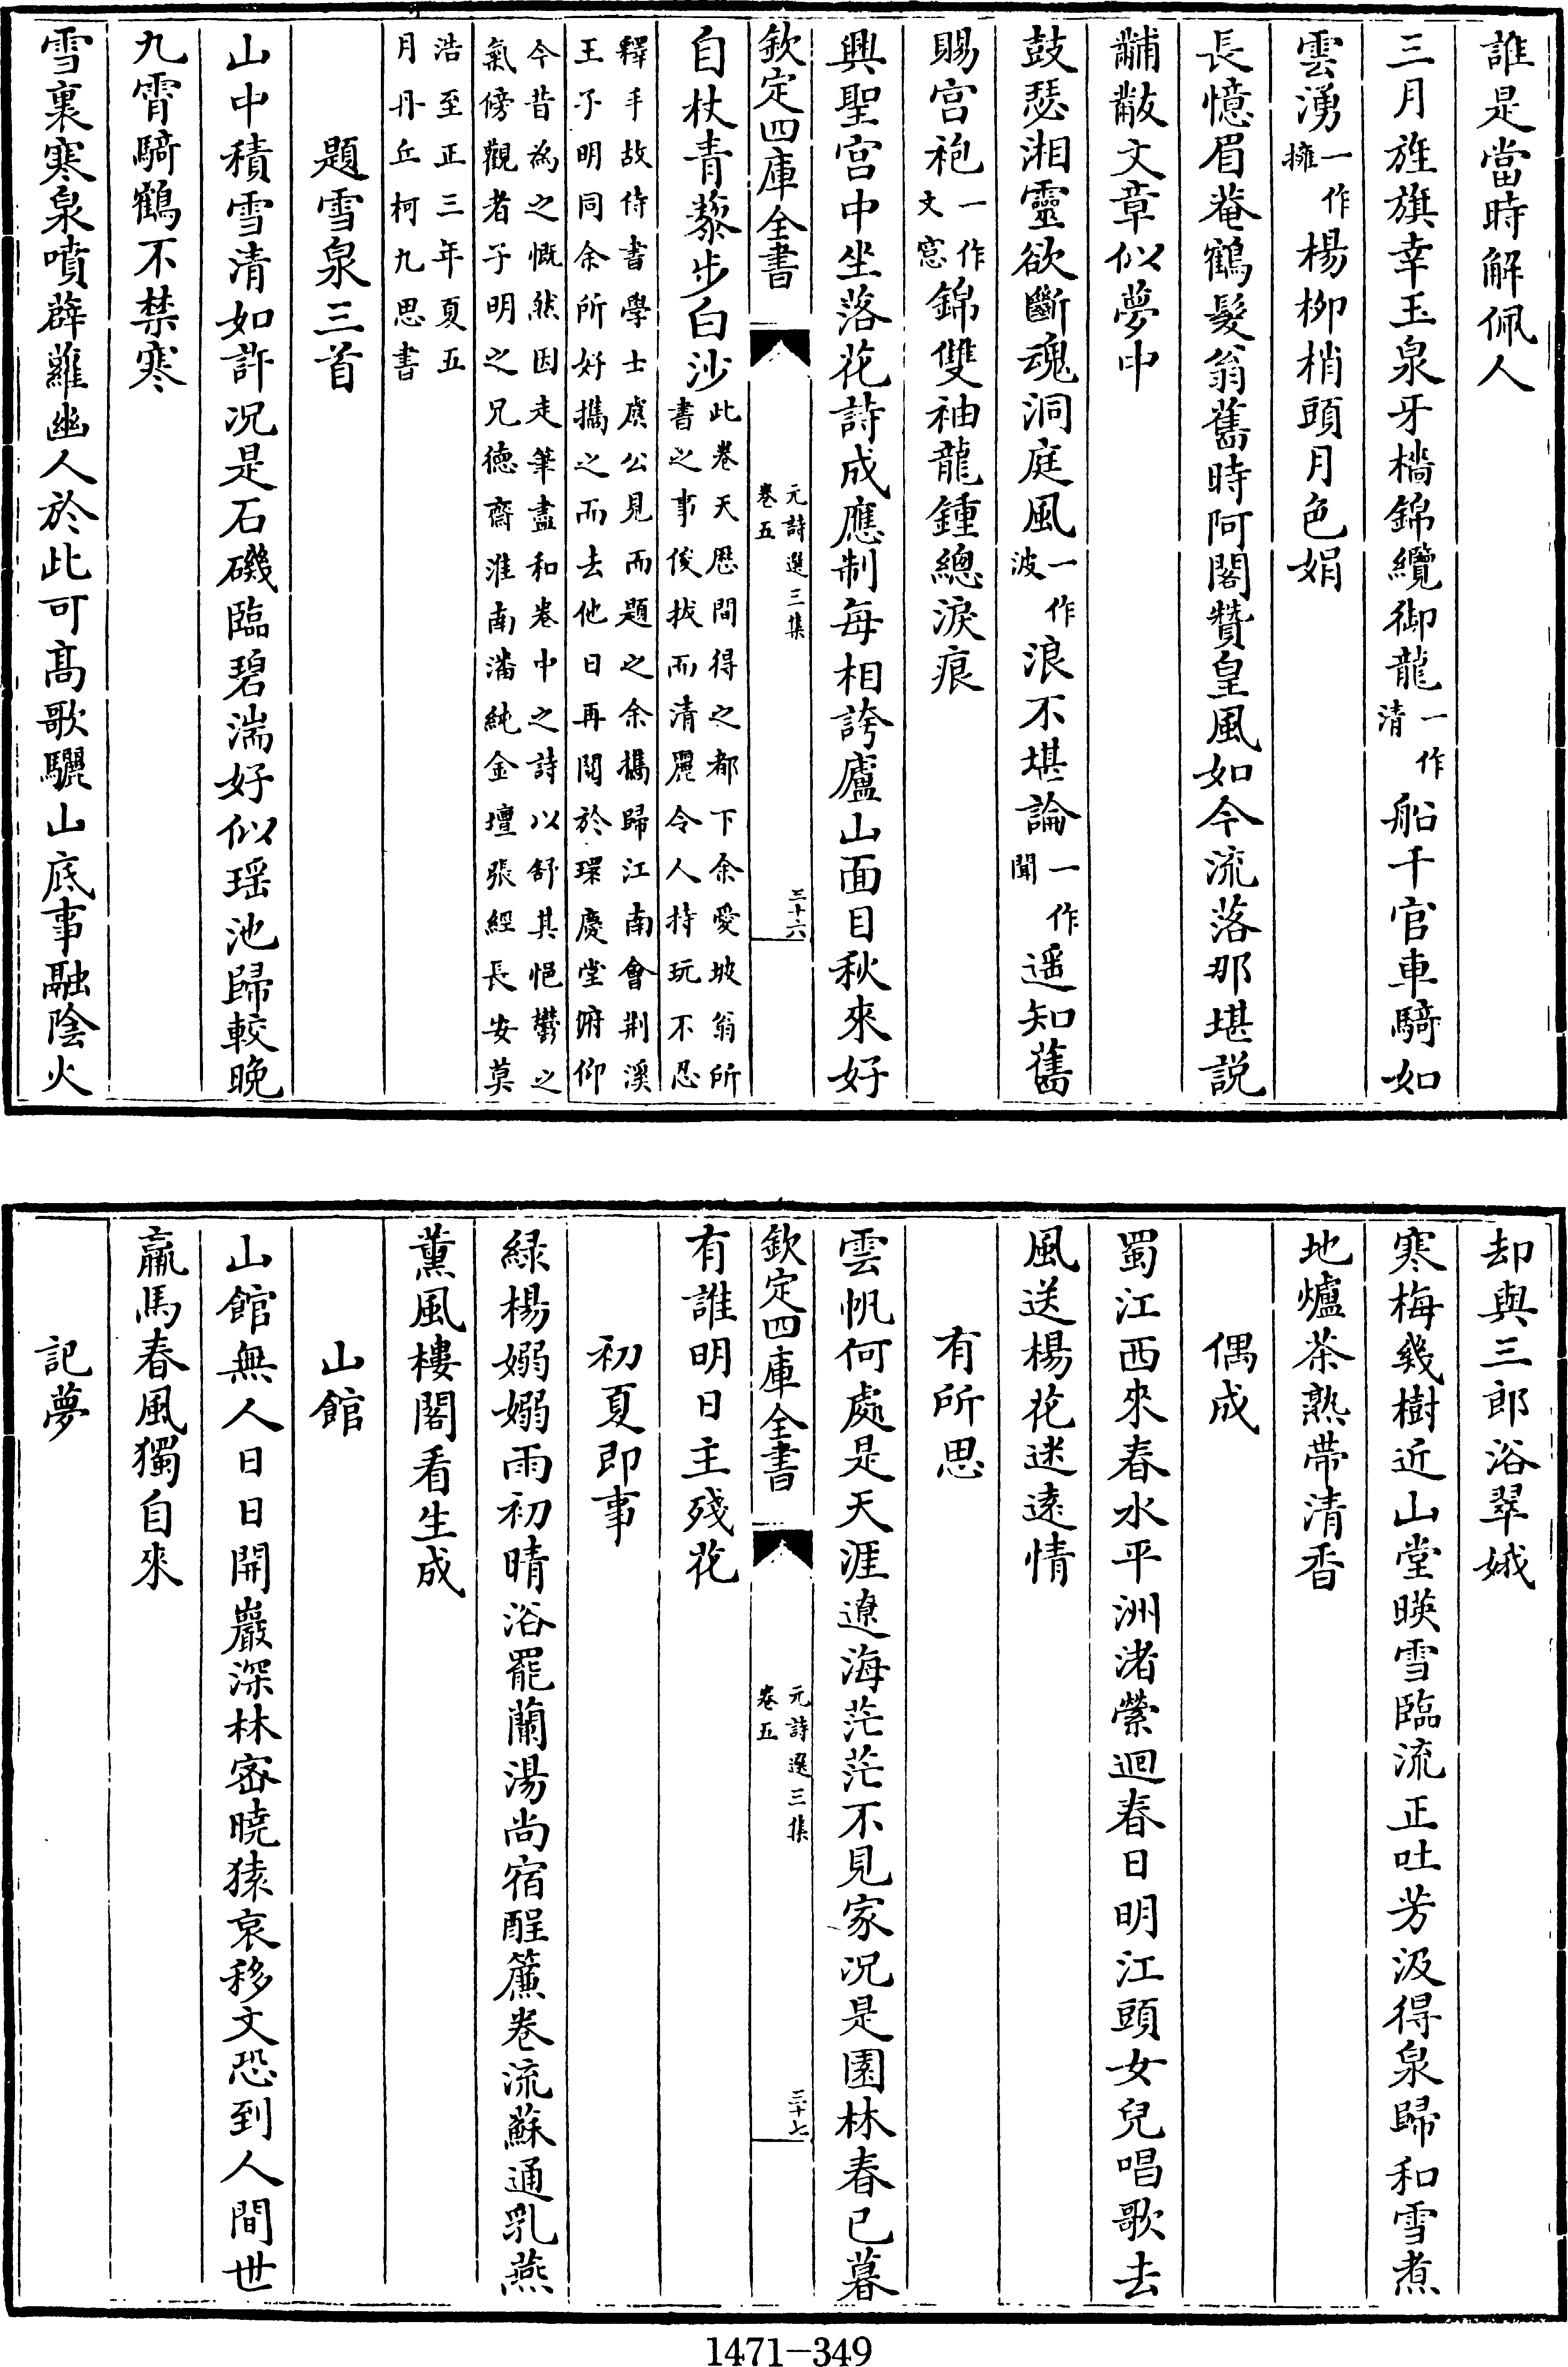 誰是當時解佩人
三月旌旗幸玉泉牙檣錦纜御龍一作清船千官車騎如
雲湧一作擁楊柳梢頭月色娟
長憶眉菴鶴髮翁舊時阿閣贊皇風如今流落那堪説
黼黻文章似夢中
鼓瑟湘靈欲斷魂洞庭風一作波浪不堪論一作聞遥知舊
賜宫袍一作文窓錦雙袖龍鍾總淚痕
興聖宫中坐落花詩成應制每相誇廬山面目秋來好
欽定四庫全書
元詩選三集
卷五
三十六
自杖青藜步白沙此卷天厯間得之都下余愛坡翁所
書之事俊拔而清麗令人持玩不忍
釋手故侍書學士虞公見而題之余攜歸江南會荆溪
王子明同余所好攜之而去他日再閲於環慶堂俯仰
今昔為之慨然因走筆盡和卷中之詩以舒其悒鬱之
氣傍觀者子明之兄德齋淮南潘純金壇張經長安莫
浩至正三年夏五
月丹丘柯九思書
題雪泉三首
山中積雪清如許况是石磯臨碧湍好似瑶池歸較晚
九霄騎鶴不禁寒
雪裏寒泉噴薜蘿幽人於此可高歌驪山底事融陰火
却與三郎浴翠娥
寒梅幾樹近山堂暎雪臨流正吐芳汲得泉歸和雪煮
地爐茶熟帶清香
偶成
蜀江西來春水平洲渚縈迴春日明江頭女兒唱歌去
風送楊花迷遠情
有所思
雲帆何處是天涯遼海茫茫不見家况是園林春已暮
欽定四庫全書
元詩選三集
卷五
三十七
有誰明日主殘花
初夏即事
緑楊嫋嫋雨初晴浴罷蘭湯尚宿酲簾卷流蘇通乳燕
薰風樓閣看生成
山館
山館無人日日開巖深林密曉猿哀移文恐到人間世
羸馬春風獨自來
記夢
1471-349